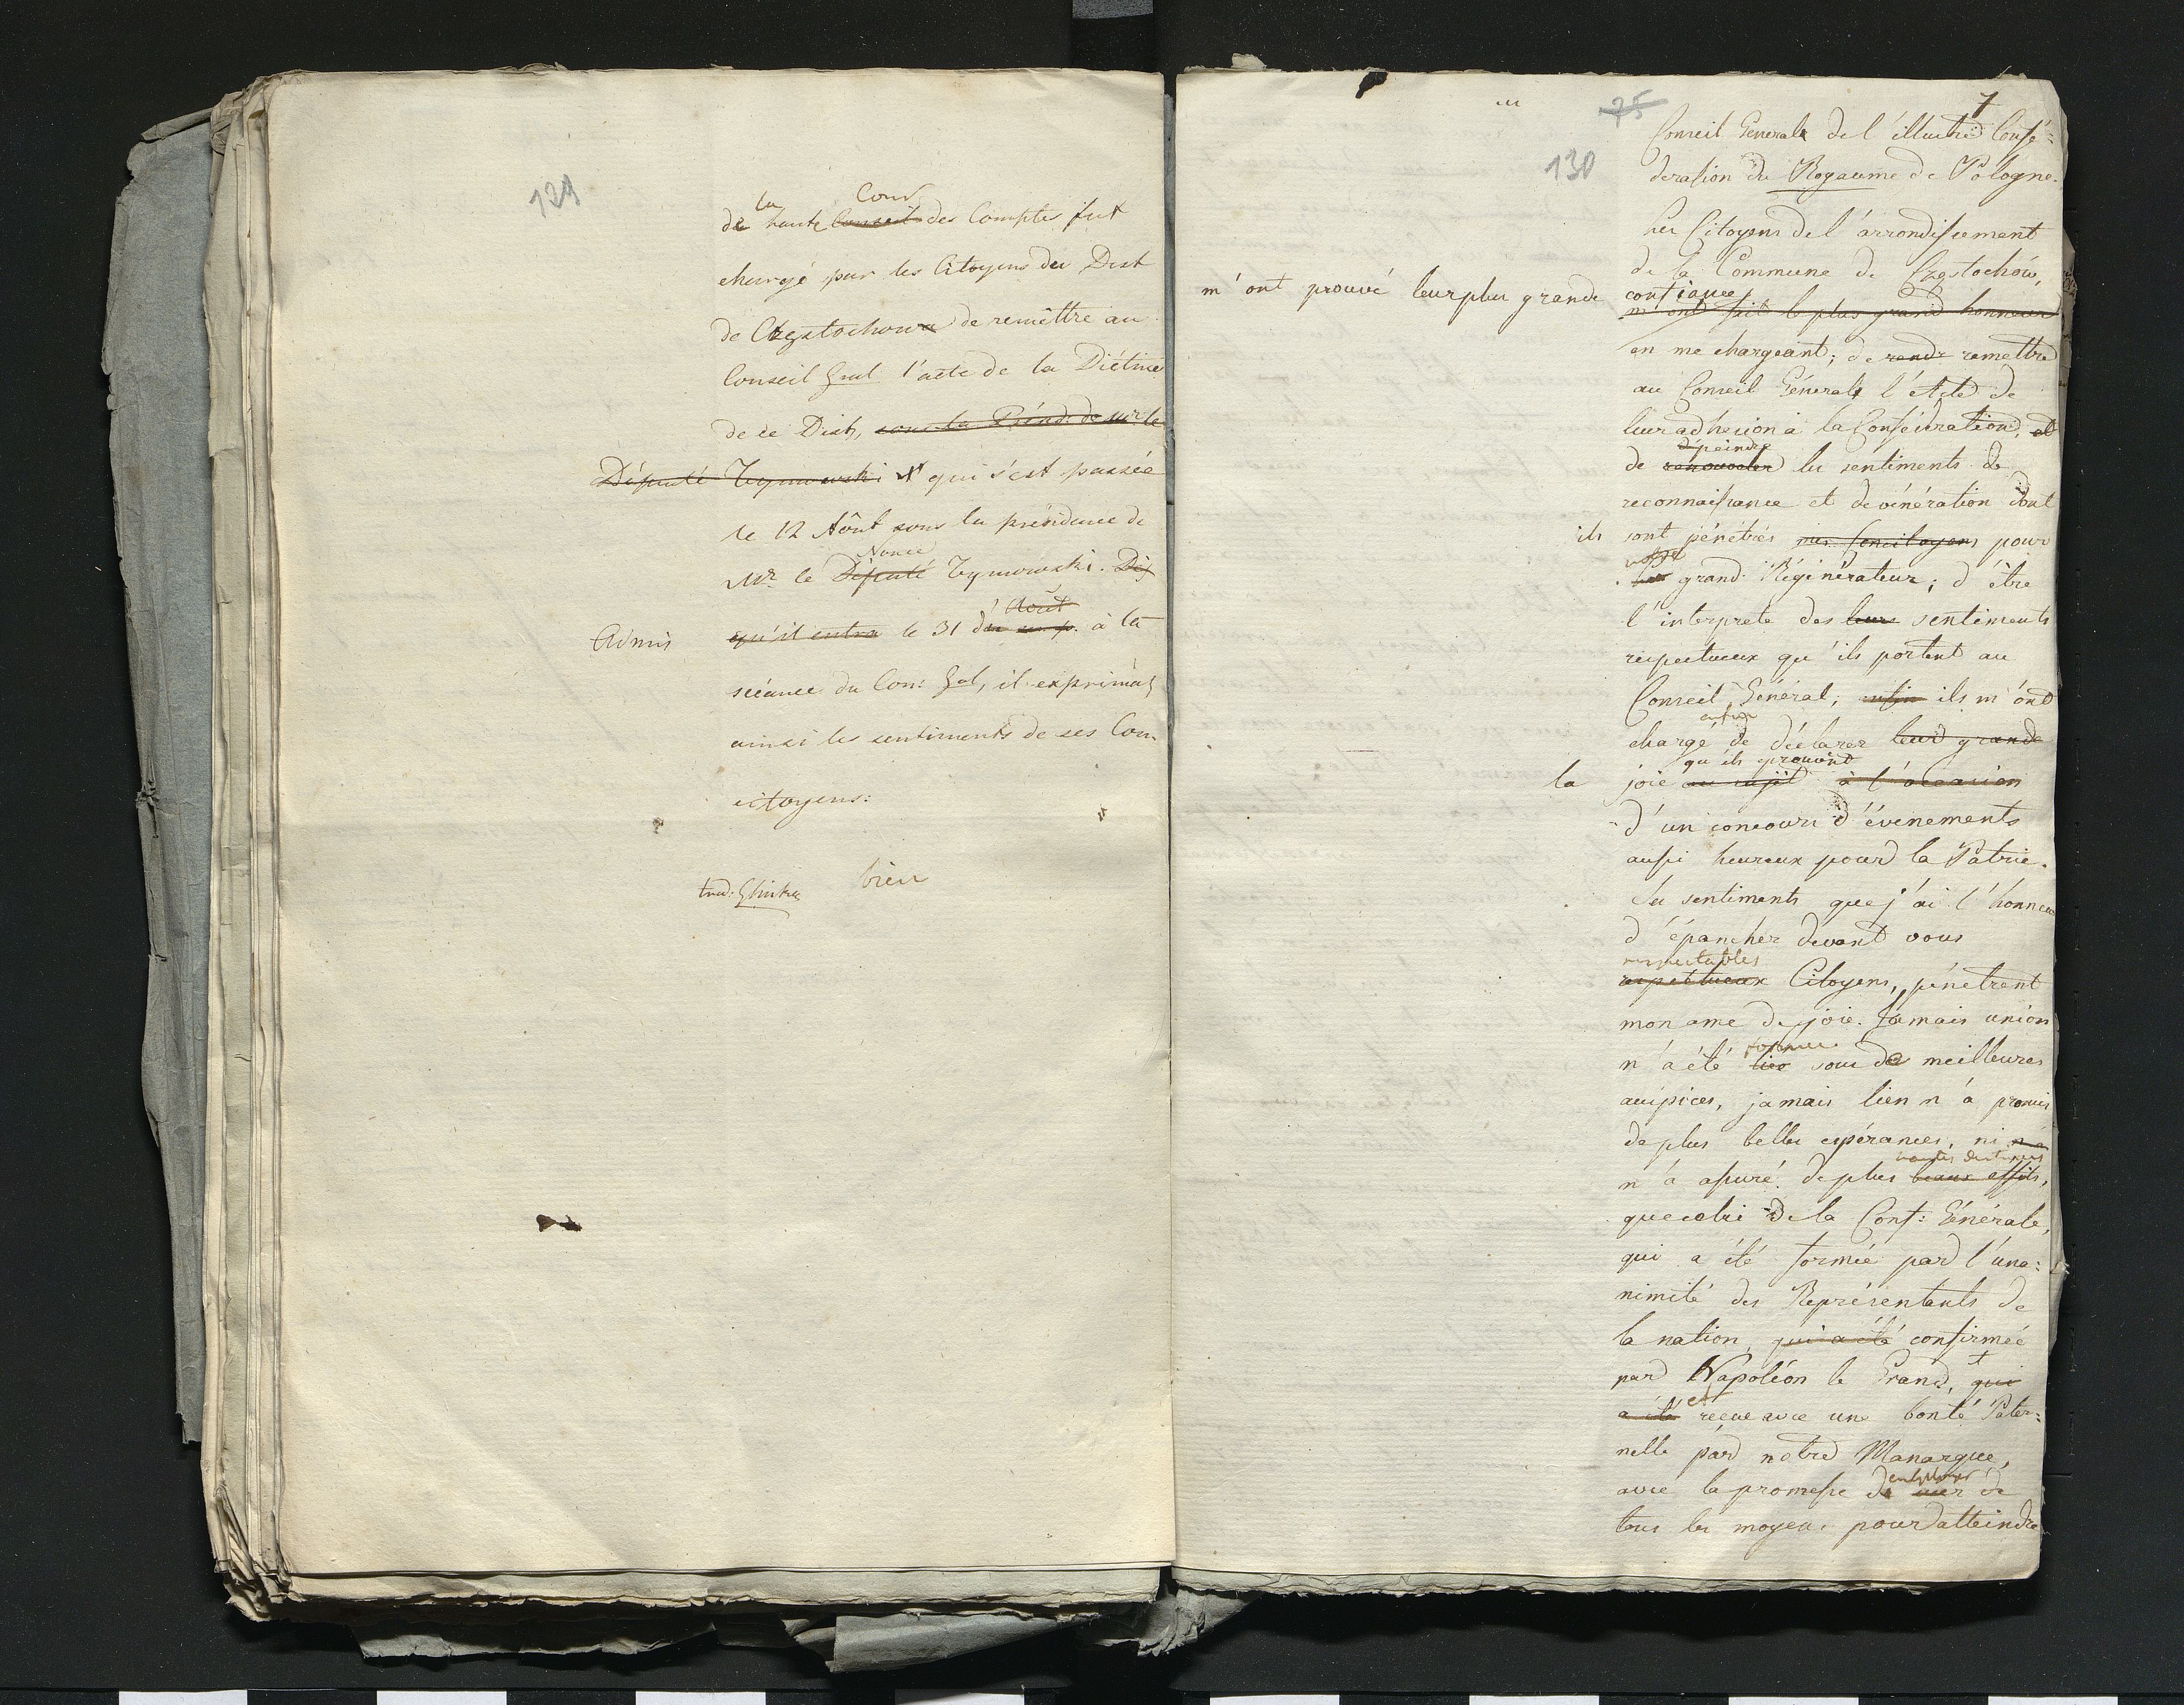 129
la Cour
de haute Conseil des Comptes fut
chargé par les Citoyens du Dist
de Częstochowa de remettre au
Conseil Gral l'acte de la Diétine
de ce Dist, sous la Présid: de Mr le
Député Tymowski qui s'est passée
le 12 Août sous la présidence de
Nonce
Mr le Député Tymowski.
Août
Admis qu'il entra le 31 du à la
séance du Con: Gal, il exprima
ainsi les sentiments de ses Con
citoyens:
trad: Glinka bien
75
130
Conseil General de l'illustre Confé=
deration du Royaume de Pologne.
Les Citoyens de l'arrondissement
de la Commune de Częstochów,
m'ont prouvé leur plus grande confiance
m'ont fait le plus grand honneur
en me chargeant; de rendr remettre
au Conseil Général l'Acte de
leur adhesion à la Conféderation, et
dépeindre
de renouveler les sentiments de
reconnaissance et de vénération dont
ils sont pénétrés mes Concitoyens pour
grand Régénérateur; d'être
l'interprete des leurs sentiments
respectueux qu'ils portent au
Conseil Général; enfin ils m'ont
enfin
chargé de déclarer leur grande
qu'ils éprouvent
la joie au sujet à l'occasion
d'un concours d'évenements
aussi heureux pour la Patrie.
Les sentiments que j'ai l'honneur
d'épancher devant vous
respectables
respectueux Citoyens, pénètrent
mon ame de joie. Jamais union
formée
n'a été liée sous de meilleures
auspices, jamais lien n'a promis
de plus belles espérances, ni n'a
hautes destinées
n'a assuré de plus beaux effets,
que celui de la Conf: Générale,
qui a été formée par l'una=
nimité des Représentants de
la nation, qui a été confirmée
par Napoléon le Grand, qui
et
a été reçue avec une bonté Pater=
nelle par notre Monarque,
employer
avec la promesse de user de
tous les moyens pour atteindre